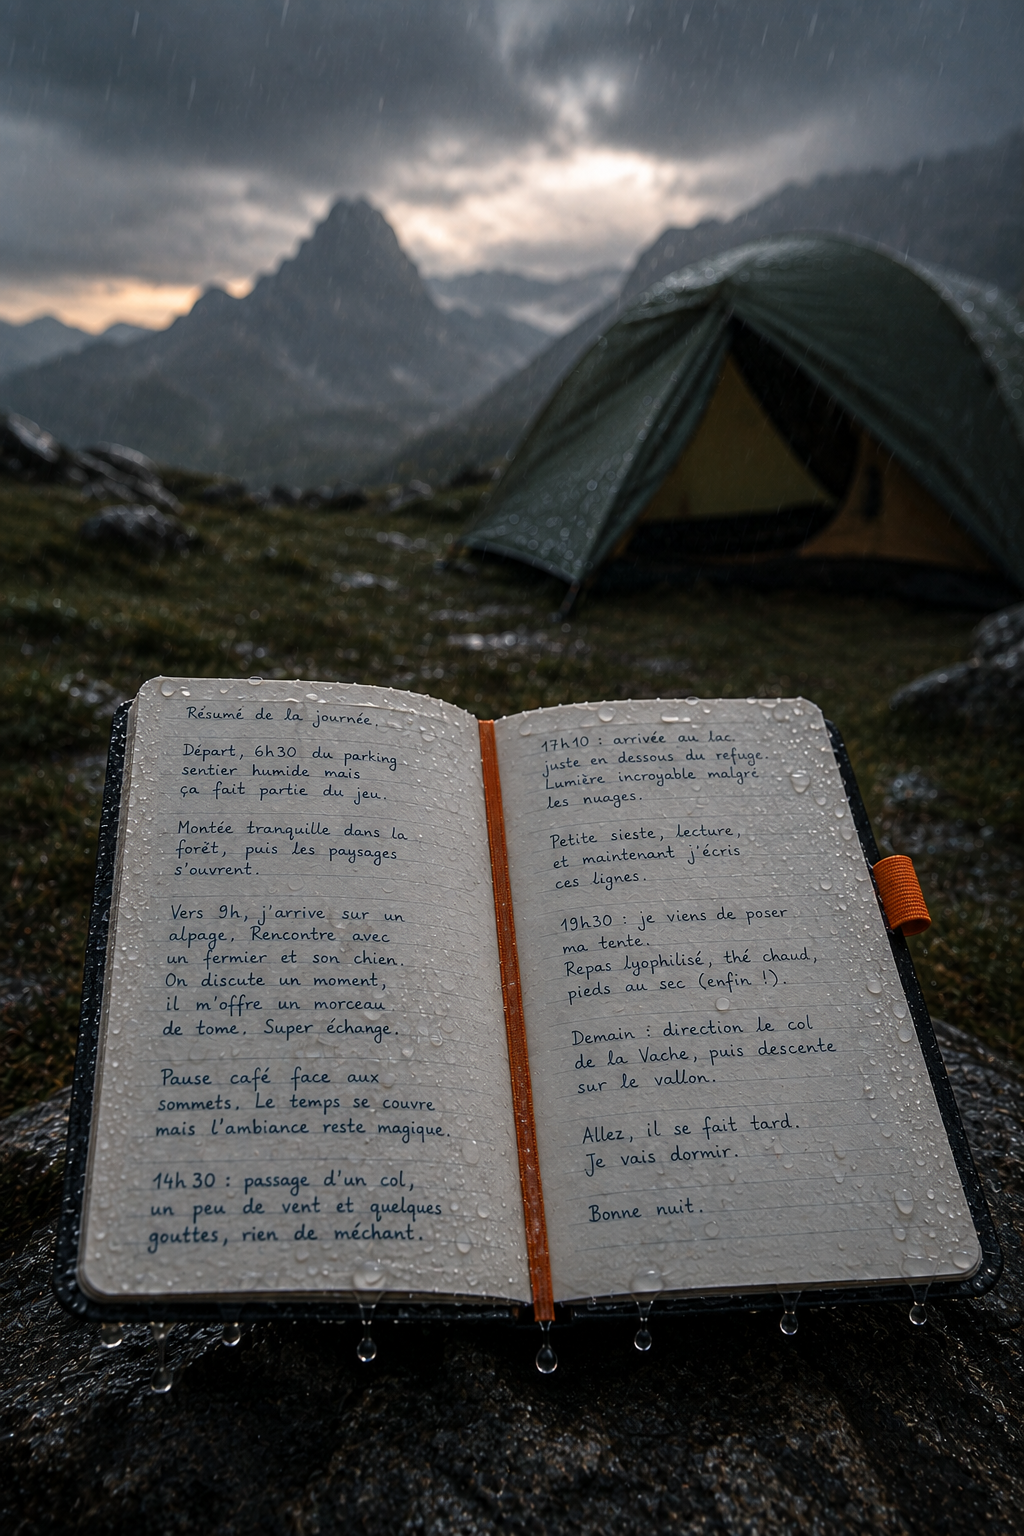 Résumé de la journée.
Départ, 6h30 du parking
sentier humide mais
ça fait partie du jeu.
Montée tranquille dans la
forêt, puis les paysages
s'ouvrent.
Vers 9h, j'arrive sur un
alpage. Rencontre avec
un fermier et son chien.
On discute un moment,
il m'offre un morceau
de tome. Super échange.
Pause café face aux
sommets. Le temps se couvre
mais l'ambiance reste magique.
14h30 : passage d'un col,
un peu de vent et quelques
gouttes, rien de méchant.
17h10 : arrivée au lac.
juste en dessous du refuge.
Lumière incroyable malgré
les nuages.
Petite sieste, lecture,
et maintenant j'écris
ces lignes.
19h30 : je viens de poser
ma tente.
Repas lyophilisé, thé chaud,
pieds au sec (enfin !).
Demain : direction le col
de la Vache, puis descente
sur le vallon.
Allez, il se fait tard.
Je vais dormir.
Bonne nuit.